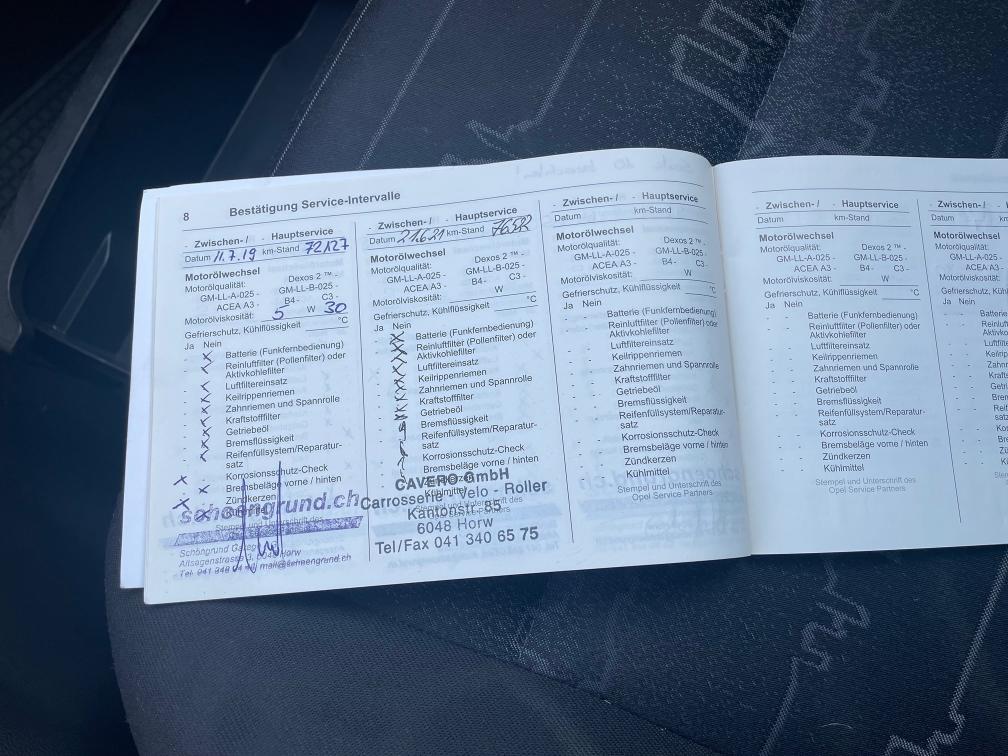 8 Bestätigung Service-Intervalle
- Zwischen- / - Hauptservice
Datum 11.7.19 km-Stand 72127
Motorölwechsel
Motorölqualität: Dexos 2 ™ -
GM-LL-A-025 - GM-LL-B-025 -
ACEA A3 - B4 - C3 -
Motorölviskosität: 5 W 30
Gefrierschutz, Kühlflüssigkeit °C
Ja Nein
- x Batterie (Funkfernbedienung)
- x Reinluftfilter (Pollenfilter) oder
Aktivkohlefilter
- x Luftfiltereinsatz
- x Keilrippenriemen
- x Zahnriemen und Spannrolle
- x Kraftstofffilter
- x Getriebeöl
- x Bremsflüssigkeit
- x Reifenfüllsystem/Reparatur-
satz
x - Korrosionsschutz-Check
x - Bremsbeläge vorne / hinten
- x Zündkerzen
schoengrund.ch
Stempel und Unterschrift des
Schöngrund Garage
Altsagenstrasse 3, 6048 Horw
mail@schoengrund.ch
- Zwischen- / - Hauptservice
Datum 21.6.21 km-Stand
Motorölwechsel
Motorölqualität: Dexos 2 ™ -
GM-LL-A-025 - GM-LL-B-025 -
ACEA A3 - B4 - C3 -
Motorölviskosität: W
Gefrierschutz, Kühlflüssigkeit °C
Ja Nein
- x Batterie (Funkfernbedienung)
- x Reinluftfilter (Pollenfilter) oder
Aktivkohlefilter
- x Luftfiltereinsatz
- x Keilrippenriemen
- x Zahnriemen und Spannrolle
- x Kraftstofffilter
- x Getriebeöl
Bremsflüssigkeit
Reifenfüllsystem/Reparatur-
satz
Korrosionsschutz-Check
Bremsbeläge vorne / hinten
Zündkerzen
Kühlmittel
CAVERO GmbH
Carrosserie - Velo - Roller
Kantonstr. 85
6048 Horw
Tel/Fax 041 340 65 75
- Zwischen- / - Hauptservice
Datum km-Stand
Motorölwechsel
Motorölqualität: Dexos 2 ™ -
GM-LL-A-025 - GM-LL-B-025 -
ACEA A3 - B4 - C3 -
Motorölviskosität: W
Gefrierschutz, Kühlflüssigkeit °C
Ja Nein
- - Batterie (Funkfernbedienung)
- - Reinluftfilter (Pollenfilter) oder
Aktivkohlefilter
- - Luftfiltereinsatz
- - Keilrippenriemen
- - Zahnriemen und Spannrolle
- - Kraftstofffilter
- - Getriebeöl
- - Bremsflüssigkeit
- - Reifenfüllsystem/Reparatur-
satz
- - Korrosionsschutz-Check
- - Bremsbeläge vorne / hinten
- - Zündkerzen
- - Kühlmittel
Stempel und Unterschrift des
Opel Service Partners
- Zwischen- / - Hauptservice
Datum km-Stand
Motorölwechsel
Motorölqualität: Dexos 2 ™ -
GM-LL-A-025 - GM-LL-B-025 -
ACEA A3 - B4 - C3 -
Motorölviskosität: W
Gefrierschutz, Kühlflüssigkeit °C
Ja Nein
- - Batterie (Funkfernbedienung)
- - Reinluftfilter (Pollenfilter) oder
Aktivkohlefilter
- - Luftfiltereinsatz
- - Keilrippenriemen
- - Zahnriemen und Spannrolle
- - Kraftstofffilter
- - Getriebeöl
- - Bremsflüssigkeit
- - Reifenfüllsystem/Reparatur-
satz
- - Korrosionsschutz-Check
- - Bremsbeläge vorne / hinten
- - Zündkerzen
- - Kühlmittel
Stempel und Unterschrift des
Opel Service Partners
- Zwischen- /
Datum
Motorölwechsel
Motorölqualität:
GM-LL-A-025 -
ACEA A3 -
Motorölviskosität:
Gefrierschutz, Kühl
Ja Nein